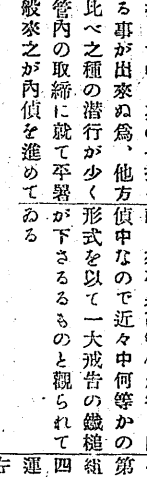 る事が出來ぬ爲、他方
比べ之種の潜行が少く
管内の取締に就て平署
般來之が内偵を進めて
偵中なので近々中何等かの
形式を以て一大戒告の鐵槌
が下さるるものと觀られて
ゐる
第
組
四
運